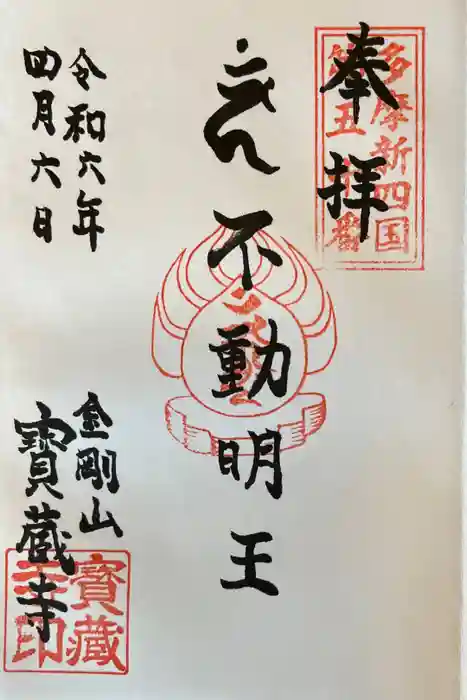 奉拝
多摩新四国
第五十番
不動明王
令和六年
四月六日
金剛山
寶蔵寺
寶蔵
寺印